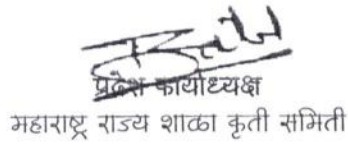 प्रदेश कार्याध्यक्ष
महाराष्ट्र राज्य शाळा कृती समिती